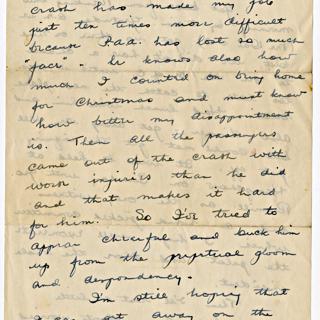 crash has made my job
just ten times more difficult
because P.a.a. has lost so much
"face". He knows also how
much I counted on being home
for Christmas and must know
how bitter my disappointment
is. Then all the passengers
came out of the crash with
worse injuries than he did
and that makes it hard
for him. So I've tried to
appear cheerful and buck him
up from the perpetual gloom
and despondency.
I'm still hoping that
I can get away on the